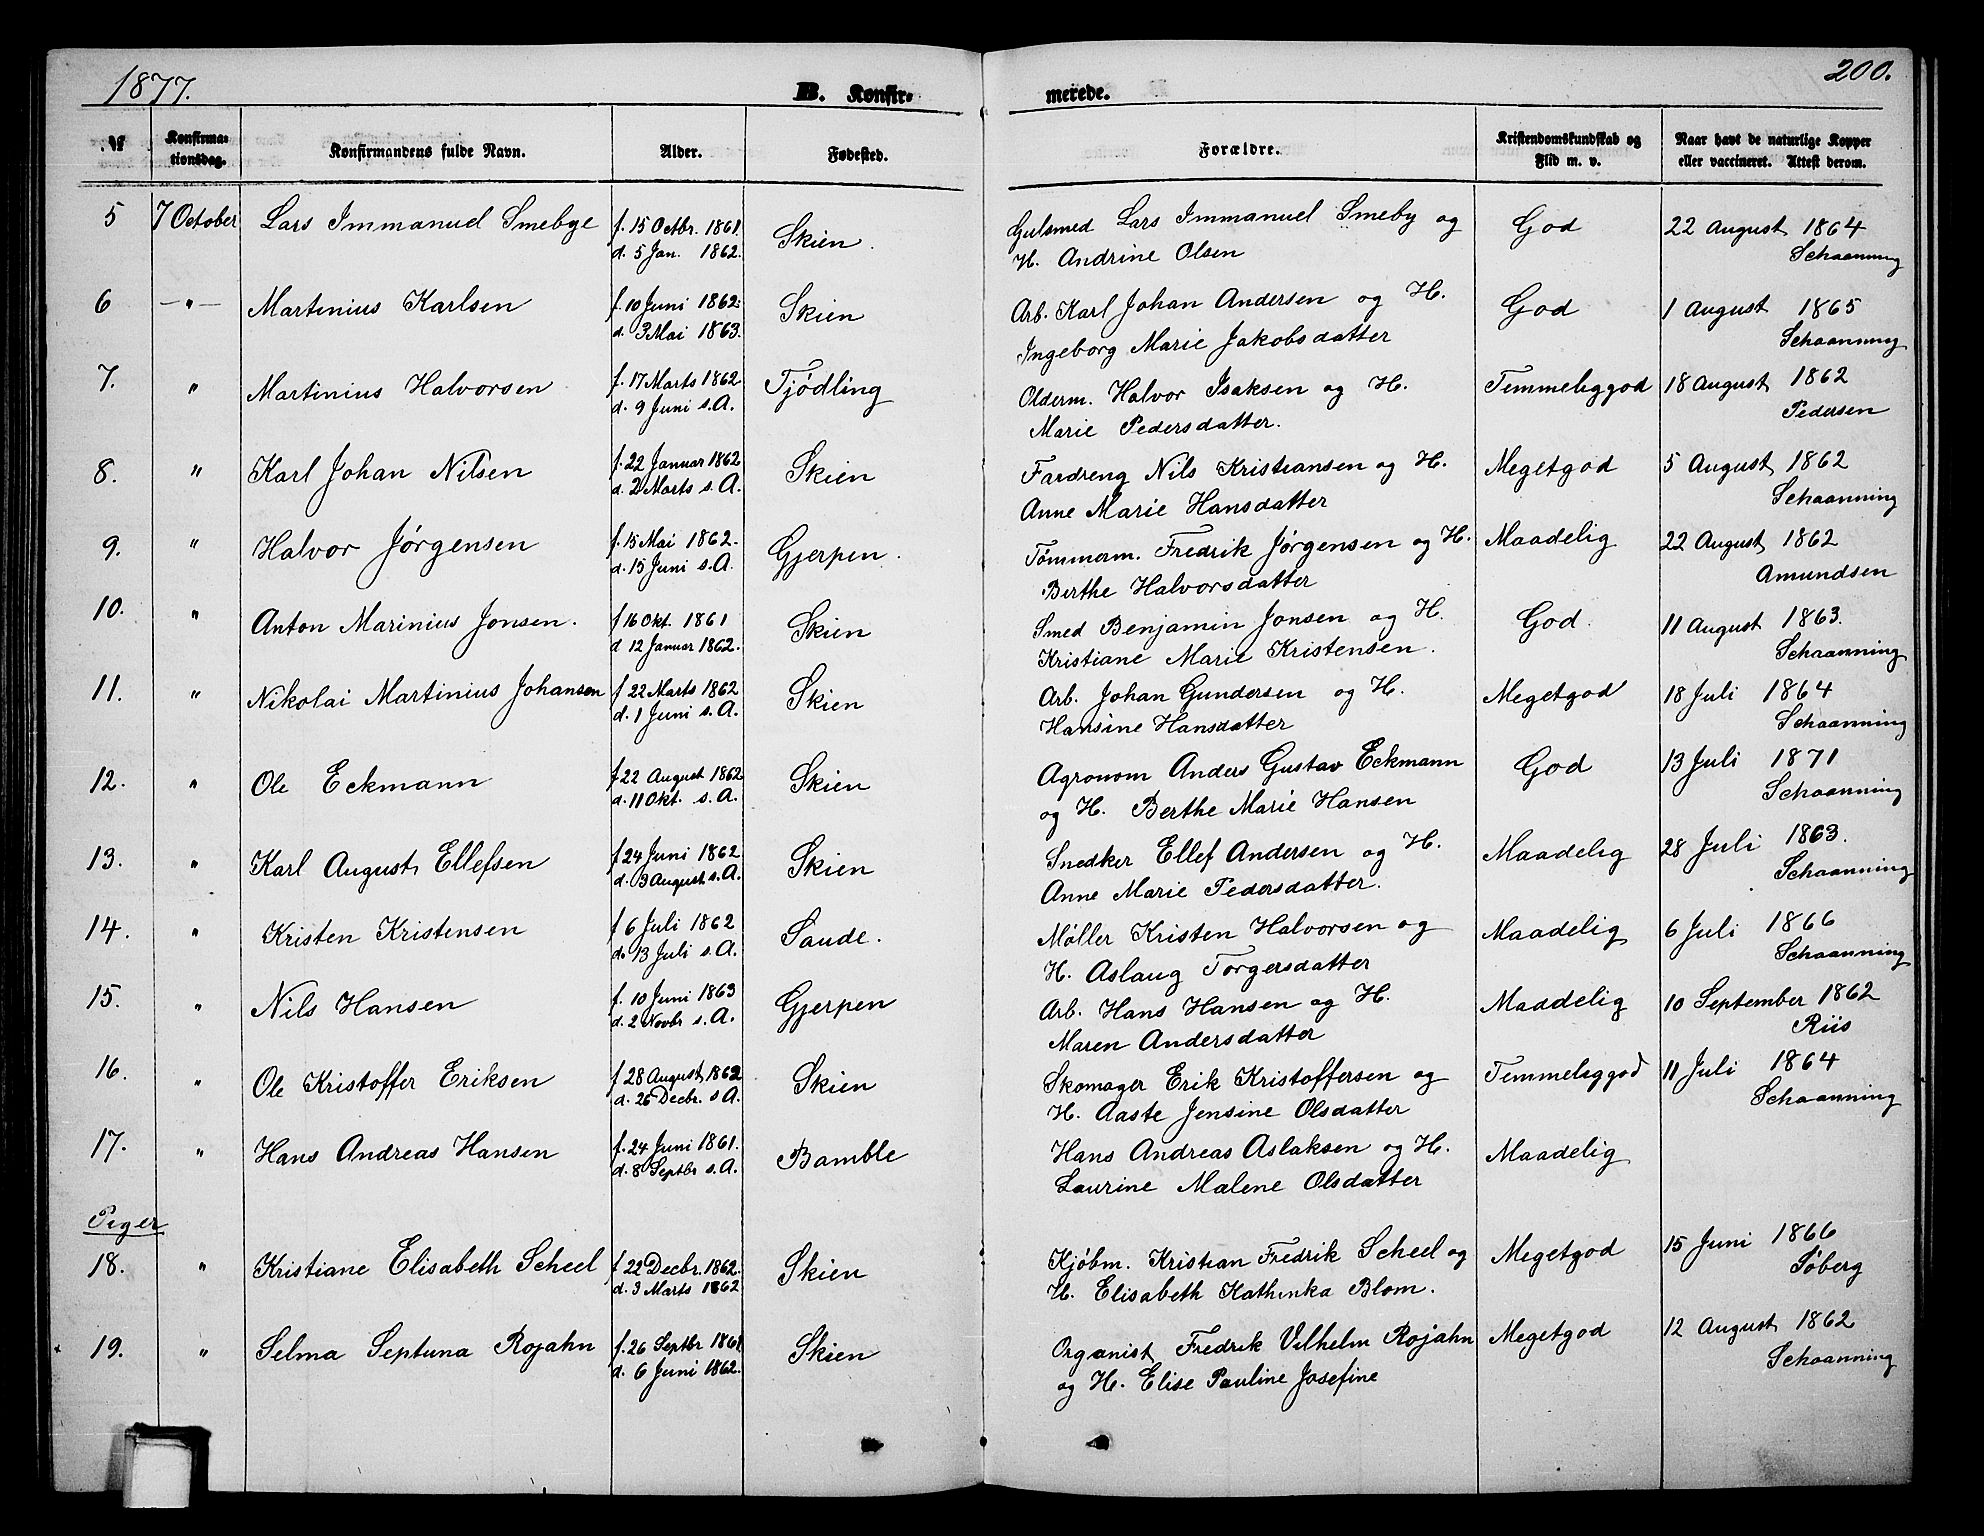 1877.
B. Konfir-
merede.
200.
№ Konfirma-tionsdag. Konfirmandens fulde Navn. Alder. Fødested. Forældre. Kristendomskundskab og Flid m. v. Naar havt de naturlige Kopper eller vaccineret. Attest derom.
5 7 October Lars Immanuel Smebye f. 15 Octbr. 1861 Skien. Gulsmed Lars Immanuel Smeby og God 22 August 1864
d. 5 Jan. 1862. H. Andrine Olsen Schaanning
6 -"- Martinius Karlsen f. 10 Juni 1862. Skien Arb. Karl Johan Andersen og H. God 1 August 1865
d. 3 Mai 1863. Ingeborg Marie Jakobsdatter Schaanning
7. " Martinius Halvorsen f. 17 Marts 1862 Tjödling Olderm. Halvor Isaksen og H. Temmeliggod 18 August 1862
d. 9 Juni s.A. Marie Pedersdatter. Pedersen
8. " Karl Johan Nilsen f. 22 Januar 1862 Skien Fardreng Nils Kristiansen og H. Megetgod 5 August 1862
d. 2 Marts s.A. Anne Marie Hansdatter Schaanning
9. " Halvor Jörgensen f. 15 Mai 1862. Gjerpen. Tømmerm. Fredrik Jørgensen og H. Maadelig 22 August 1862
d. 15 Juni s.A. Berthe Halvorsdatter Amundsen
10. " Anton Marinius Jonsen. f 16 Okt. 1861 Skien Smed Benjamin Jonsen og H. God. 11 August 1863.
d 12 Januar 1862. Kristiane Marie Kristensen. Schaanning
11. " Nikolai Martinius Johansen f 22 Marts 1862 Skien Arb. Johan Gundersen og H. Megetgod 18 Juli 1864
d. 1 Juni s.A. Hansine Hansdatter Schaanning
12. " Ole Eckmann f 22 August 1862 Skien Agronom Anders Gustav Eckmann God 13 Juli 1871
d. 11 Okt. s.A. og H. Berthe Marie Hansen Schaanning
13. " Karl August Ellefsen f 24 Juni 1862 Skien Snedker Ellef Andersen og H. Maadelig 28 Juli 1863.
d. 3 August s.A. Anne Marie Pedersdatter. Schaanning
14. " Kristen Kristensen f 6 Juli 1862 Saude. Møller Kristen Halvorsen og Maadelig 6 Juli 1866
d. 13 Juli s.A. H. Aslaug Torgersdatter Schaanning
15. " Nils Hansen f. 10 Juni 1863 Gjerpen Arb. Hans Hansen og H. Maadelig 10 September 1862
d. 2 Novbr s.A. Maren Andersdatter Riis
16. " Ole Kristoffer Eriksen f 28 August 1862 Skien Skomager Erik Kristoffersen og Temmeliggod 11 Juli 1864
d. 26 Decbr. s A. H. Aaste Jensine Olsdatter Schaanning
17. " Hans Andreas Hansen f. 24 Juni 1861. Bamble Hans Andreas Aslaksen og H. Maadelig
d. 8 Septbr s.A. Laurine Malene Olsdatter
Piger
18. " Kristiane Elisabeth Scheel f 22 Decbr. 1862. Skien Kjøbm. Kristian Fredrik Scheel og Megetgod 15 Juni 1866
d. 3 Marts 1862 H. Elisabeth Kathinka Blom. Söberg
19. " Selma Septuna Rojahn f. 26 Septbr 1861 Skien Organist Fredrik Vilhelm Rojahn Megetgod 12 August 1862
d. 6 Juni 1862. og H. Elise Pauline Josefine Schaanning